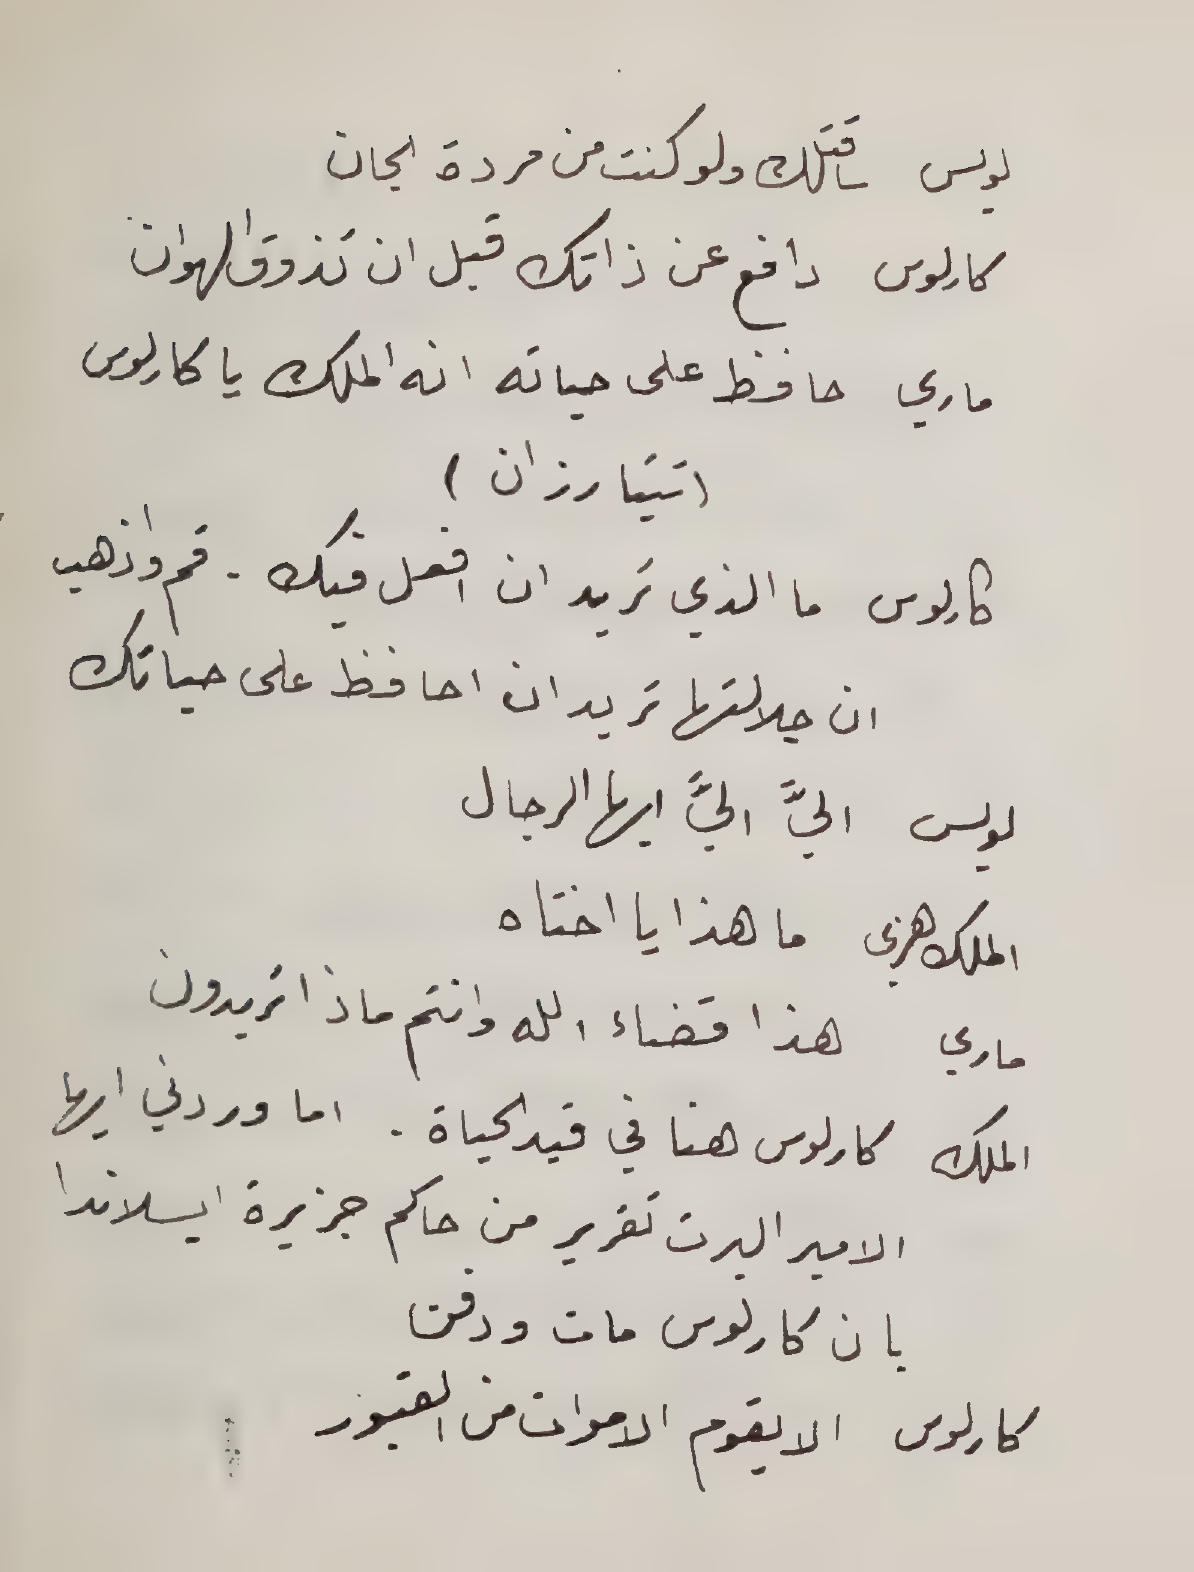 لويس ساقتلك ولو كنت من مردة الجان
كارلوس دافع عن ذاتك قبل ان تذوق الهوان
ماري حافظ على حياته انه الملك يا كارلوس
(يتبارزان)
كارلوس ما الذي تريد ان افعل فيك. قم واذهب
ان جلالتها تريد ان احافظ على حياتك
لويس اليَّ اليَّ ايها الرجال
الملك هنري ما هذا يا اختاه
ماري هذا قضاء الله وانتم ماذا تريدون
الملك كارلوس هنا في قيد الحياة. اما وردني ايها
الامير البرت تقرير من حاكم جزيرة ايسلاندا
بان كارلوس مات ودفن
كارلوس الا يقوم الاموات من القبور